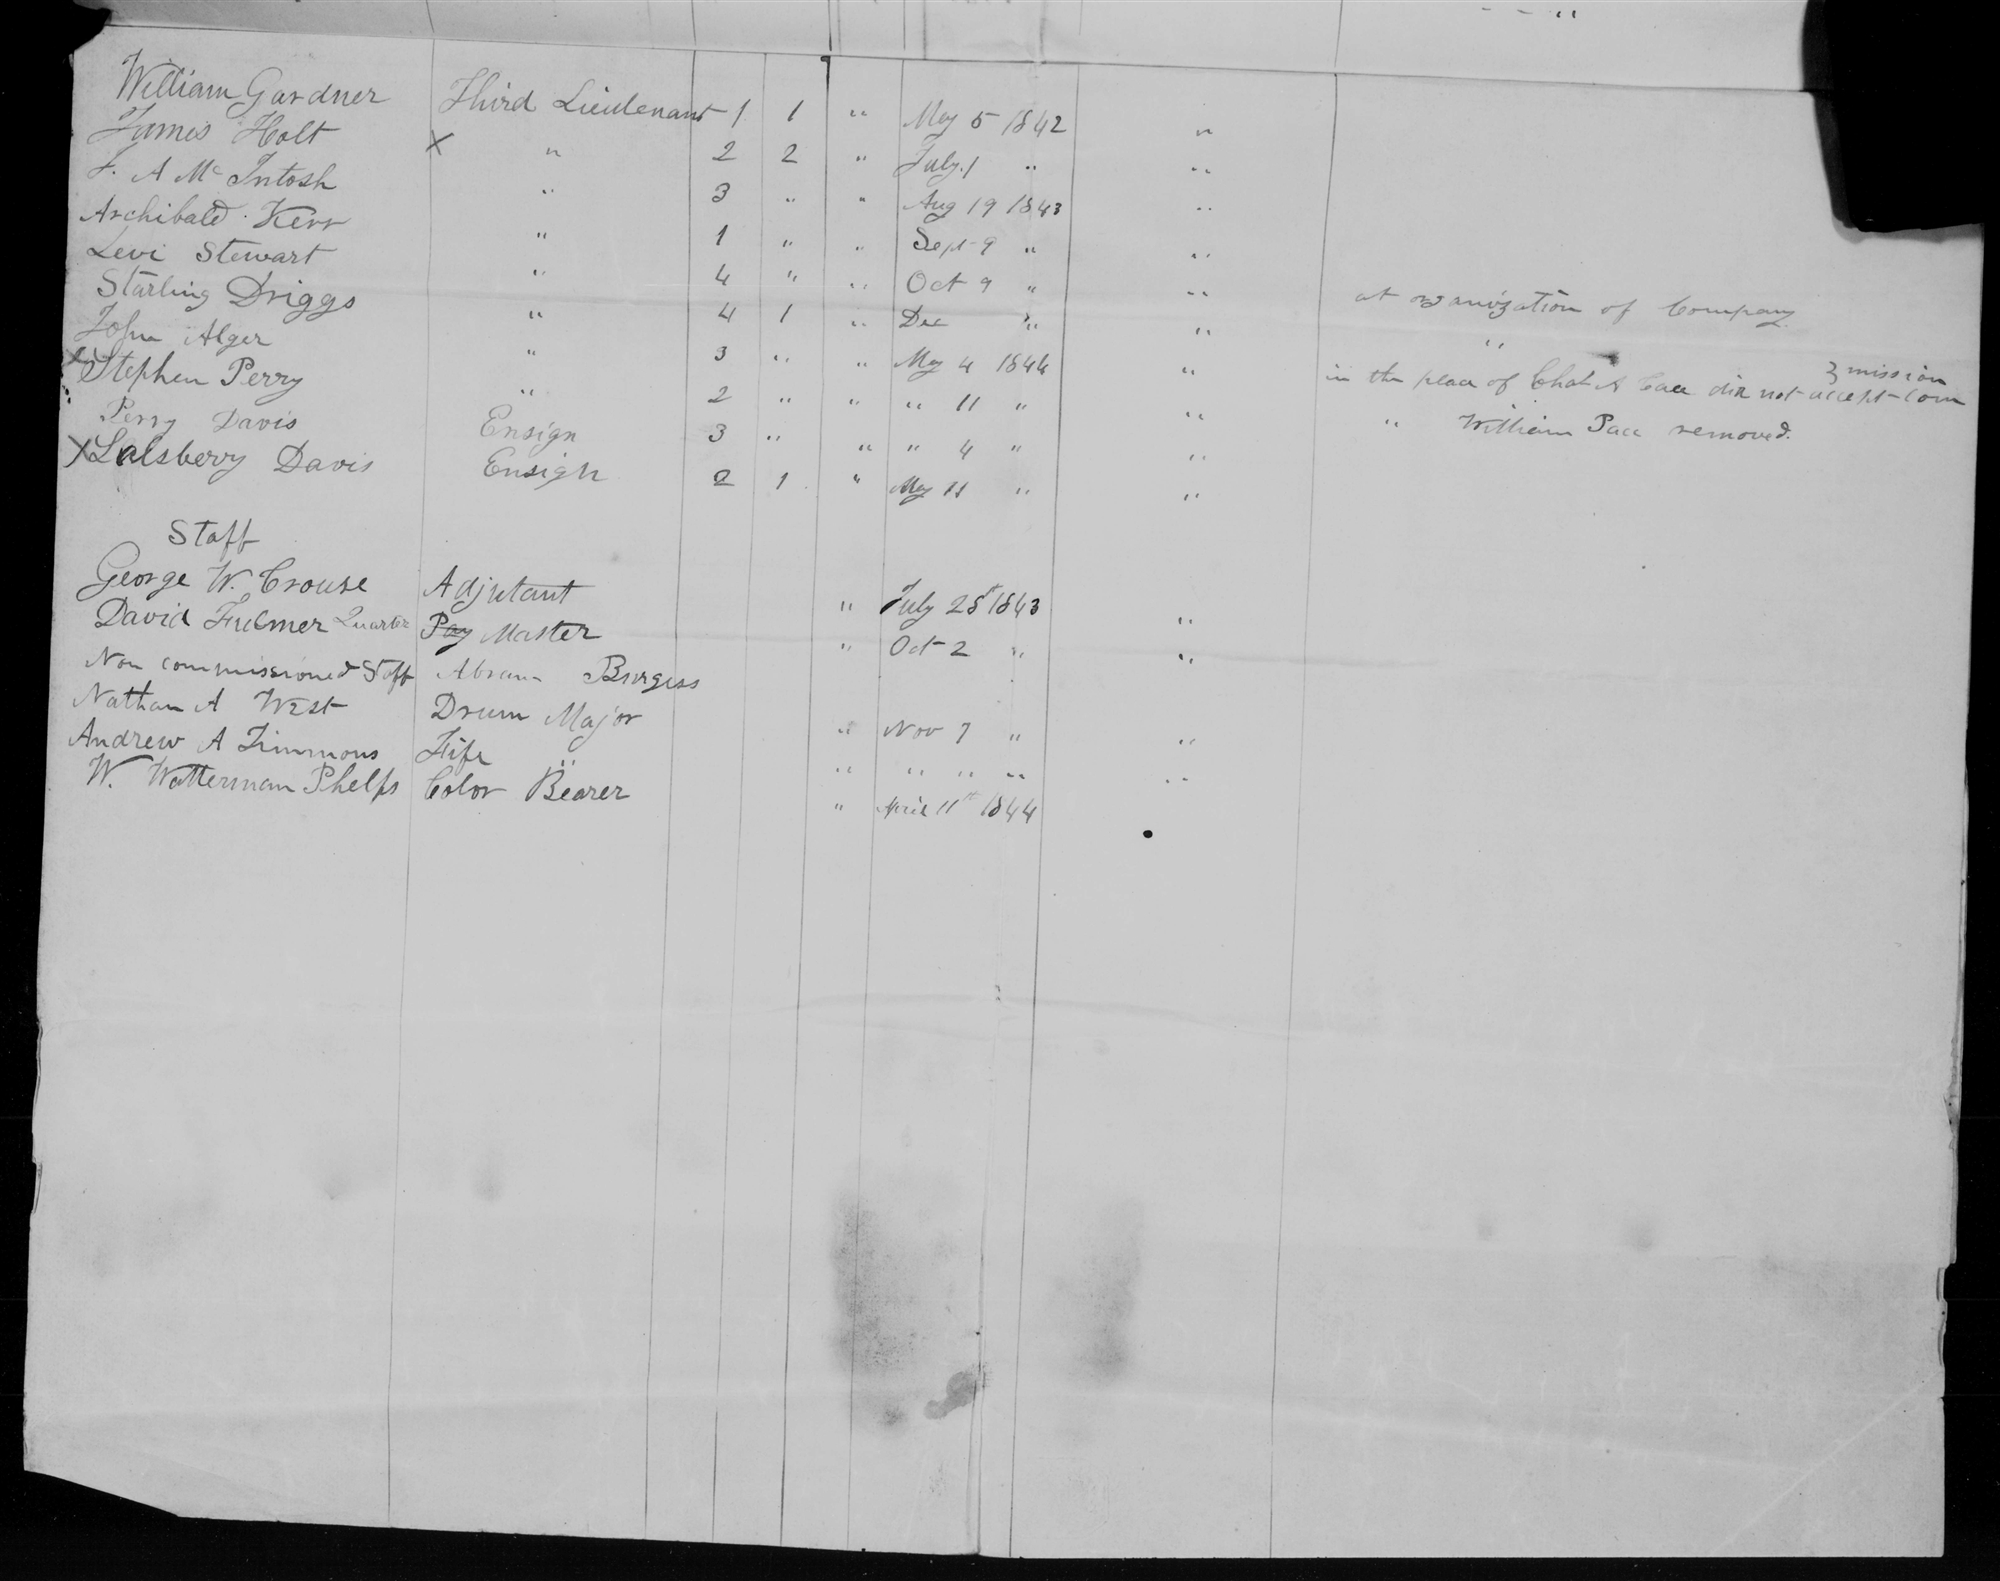 - - "
William Gardner Third Lieutenant 1 1 " May 5 1842 "
James Holt X " 2 2 " July 1 " "
J. A Mc Intosh " 3 " " Aug 19 1843 "
Archibald Kerr " 1 " " Sept 9 " "
Levi Stewart " 4 " " Oct 9 " " at organization of Company
Starling Driggs " 4 1 " Dec " " "
John Alger " 3 " " May 4 1844 " in the place of Chas A did not accept com
} mission
X Stephen Perry " 2 " " " 11 " " " William Pace removed.
Perry Davis Ensign 3 " " " 4 " "
X Salsberry Davis Ensign 2 1 " May 11 " "
Staff
George W. Crouse Adjutant " July 28t 1843 "
David Fulmer Quarter Pay Master " Oct 2 " "
Non commissioned Staff Abram Burgess
Nathan A West Drum Major " Nov 7 " "
Andrew A Timmons Fife " " " " " "
W. Watterman Phelps Color Bearer " April 11th 1844